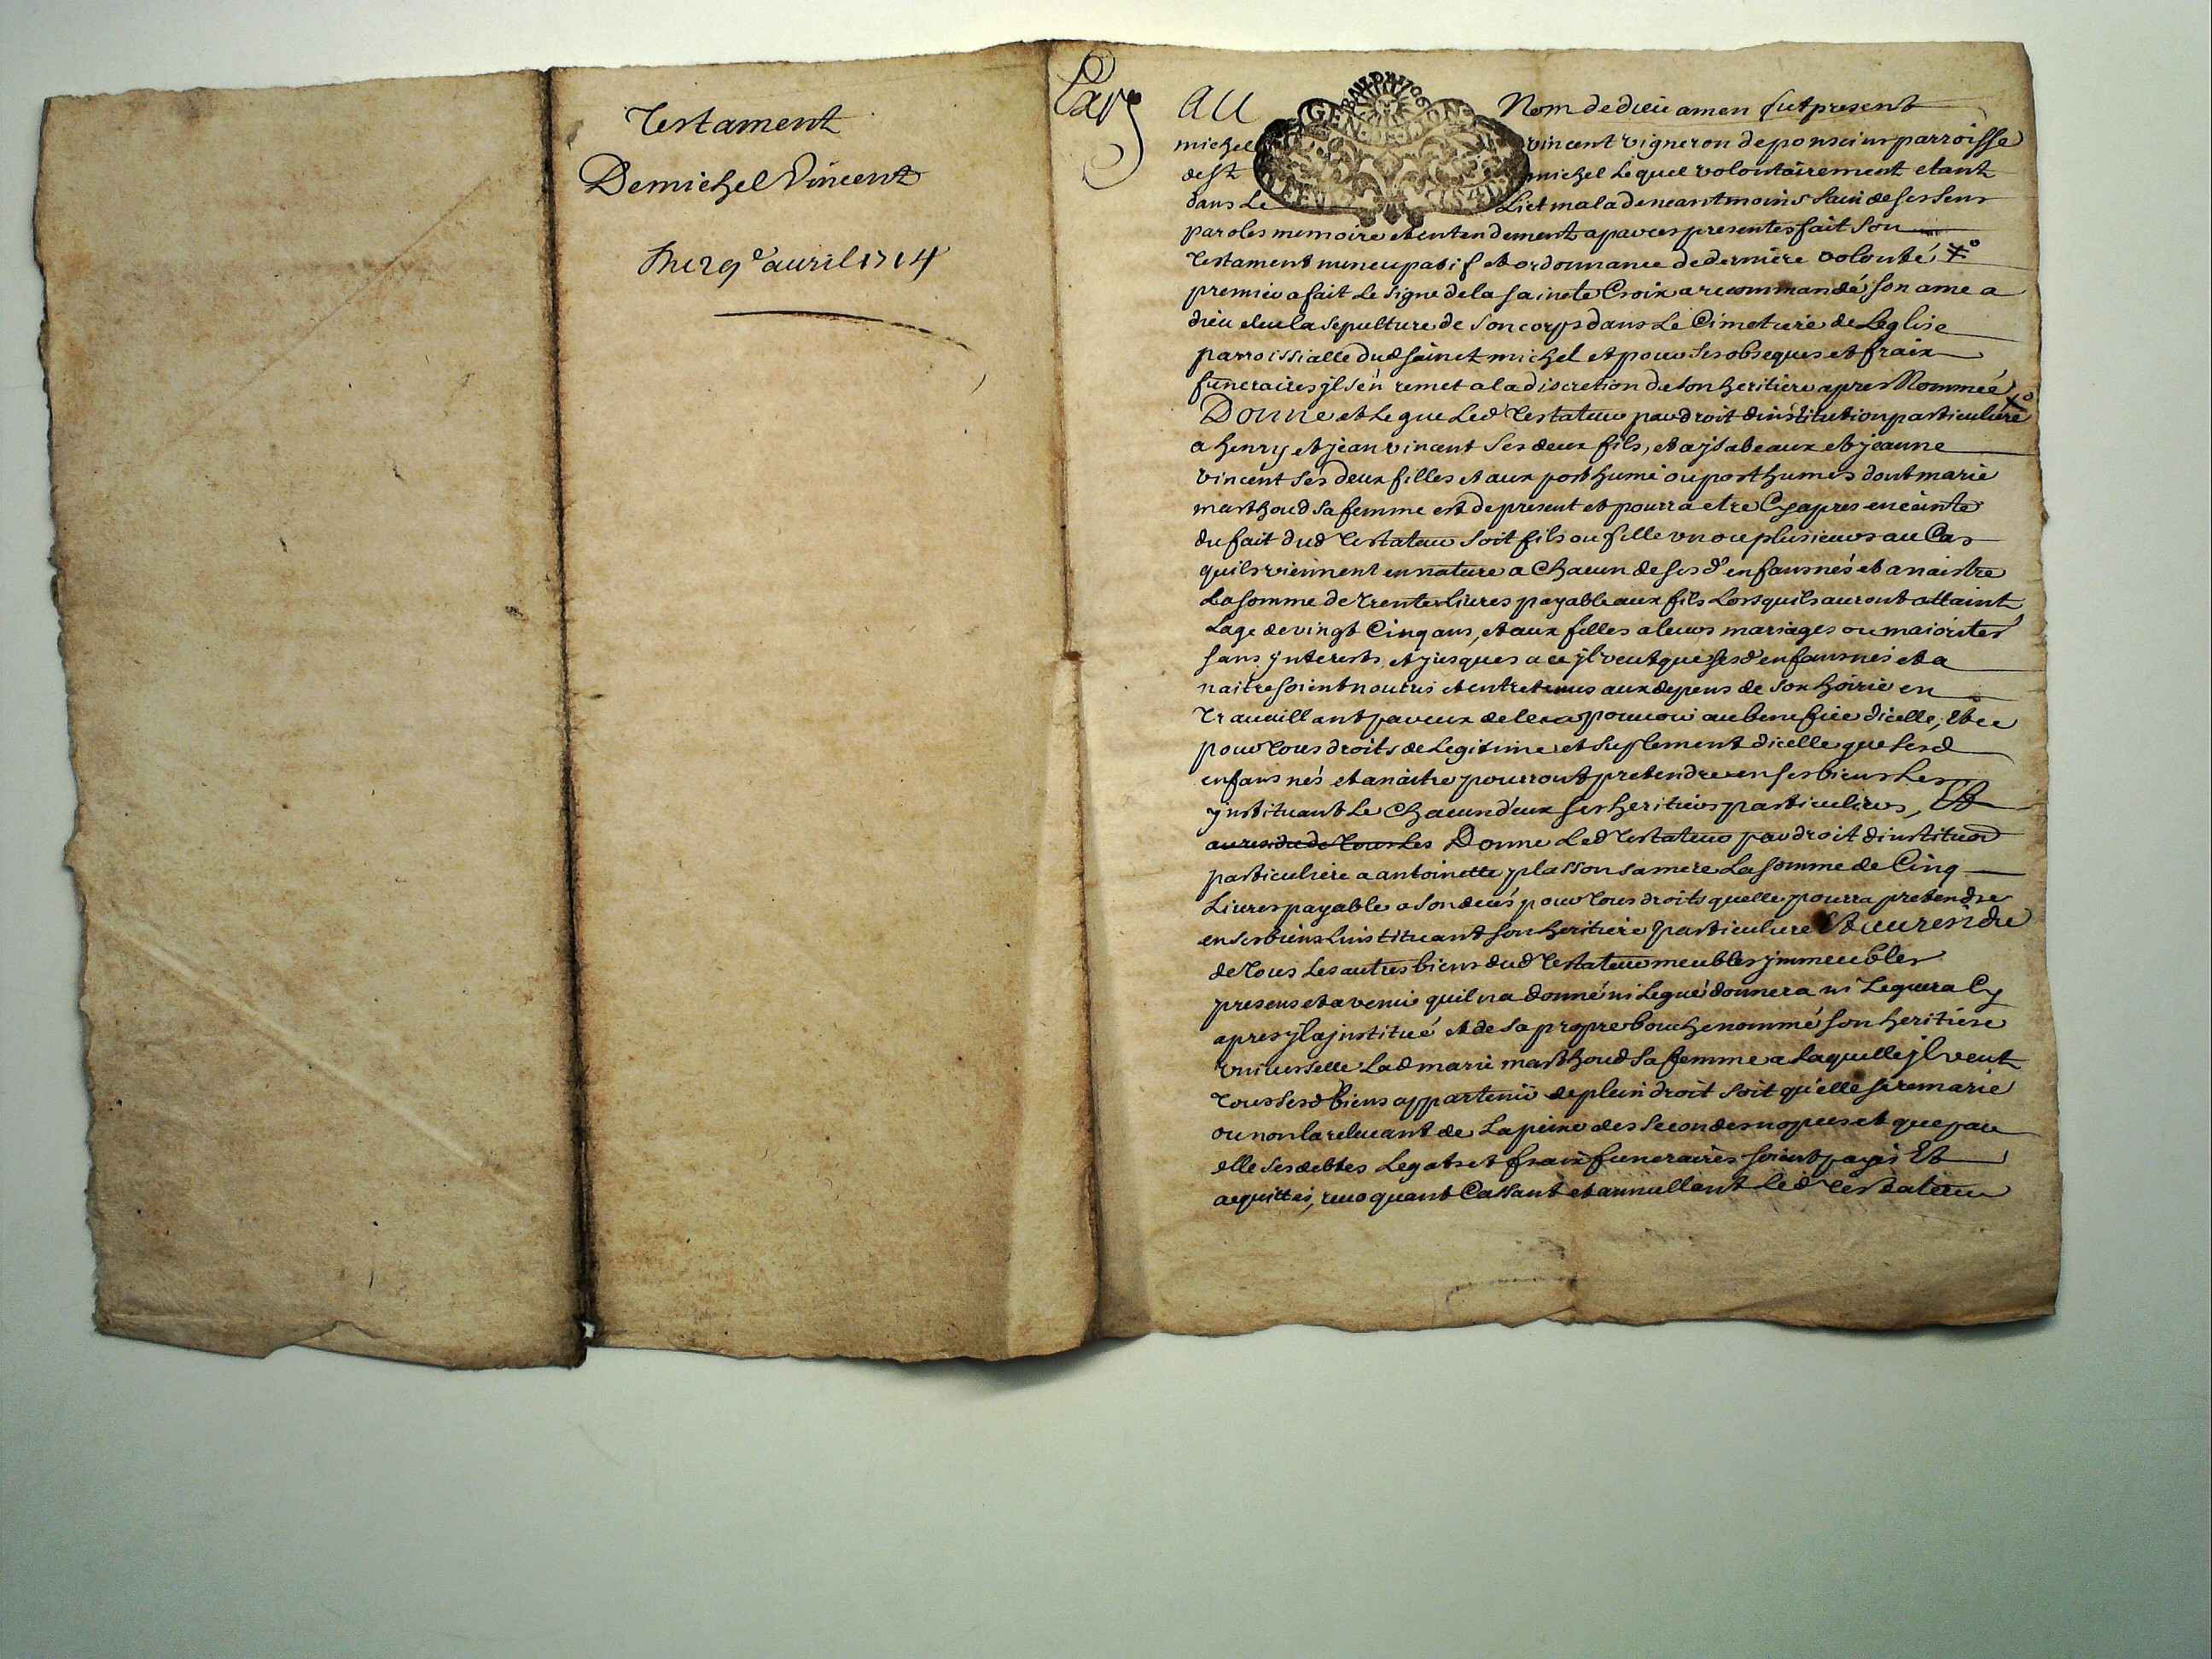 Testament
De michel Vincent
Du 29e auril 1714
AU Nom de dieu amen fut present
michel vincent vigneron de poncin parroisse
de st michel Lequel volontairement etant
dans Le Lict malade neantmoins sain de ses sens
paroles memoire et entendement a par ces presentes fait son
testament nuncupatif et ordonnance de derniere volonté
premier a fait Le signe de la saincte Croix a recommandé son ame a
dieu eleu la sepulture de son corps dans Le Cimetiere de Leglise
parroissialle dud sainct michel et pour ses obseques et fraix
funeraires jl s'en remet a la discretion de son heritiere apres Nommée
Donne et Legue Led testateur par droit d'institution particuliere
a henry et jean vincent ses deux fils, et a ysabeaux et jeanne
vincent ses deux filles et aux posthume ou posthumes dont marie
marthoud sa femme est de present et pourra etre Cy apres enceinte
du fait dud testateur soit fils ou fille vn ou plusieurs au Cas
quils viennent en nature a Chacun de sesd enfans nés et a naistre
La somme de trente Liures payable aux fils Lorsquils auront attaint
Lage de vingt Cinq ans, et aux filles a leurs mariages ou maiorités
sans jnterests, et jusques a ce jl veut que sesd enfans nés et a
naitre soient nouris et entretenus aux depens de son hoirie en
trauaillant par eux de leur pouuoir au benefice dicelle, Et ce
pour tous droits de Legitime et suplement dicelle que sesd
enfans nés et a naitre pourront pretendre en ses biens Les
jnstituant Le Chacun d'eux ses heritiers particuliers, Et
au residu de tous Les Donne Led testateur par droit d'institu͞on
particuliere a antoinette plasson sa mere La somme de Cinq
Liures payable a son decés pour tous droits quelle pourra pretendre
en ses biens Linstituant son heritiere particuliere Et au residu
de tous Les autres biens dud testateur meubles jmmeubles
presens et a venir quil na donné ni Legué donnera ni Leguera Cy
apres jl a jnstitué et de sa propre bouche nommé son heritiere
vniuerselle Lad marie marthoud sa femme a Laquelle jl veut
tous sesd biens appartenir de plein droit soit qu'elle se remarie
ou non la releuant de La peine des secondes nopces et que par
elle ses debtes Legats et fraix funeraires soient payés Et
acquittés, reuoquant Cassant et annullant Led testateur